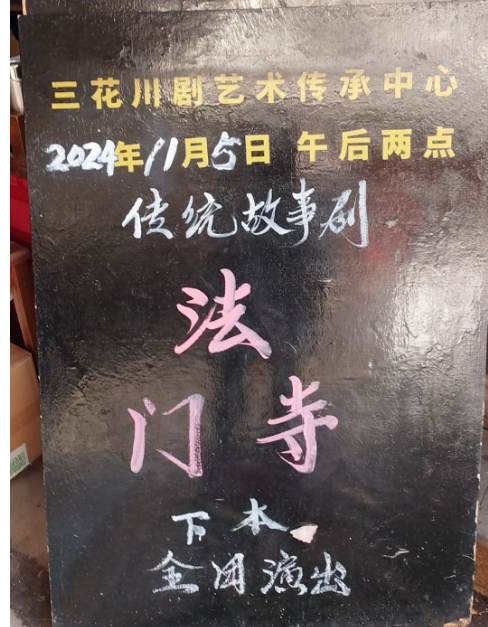 三花川剧艺术传承中心
2024年11月5日 午后两点
传统故事剧
法
门寺
下本
全团演出